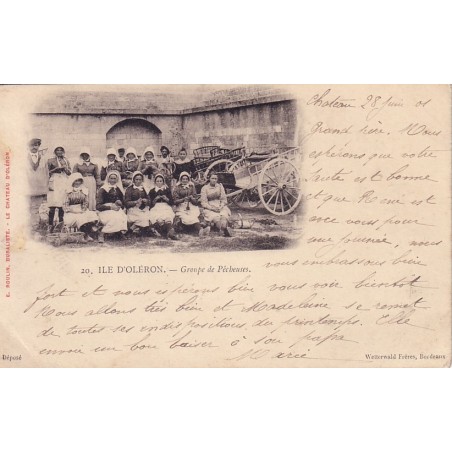 Chateau 28 Juin 01
Grand père. Nous
espérons que votre
santé est bonne
et que René est
avec vous pour
une tournée, nous
vous embrassons bien
fort et nous espérons bien vous voir bientôt
Nous allons très bien et Madeleine se remet
de toutes ses indispositions du printemps. Elle
envoie un bon baiser à son papa
Marie
20. ILE D'OLÉRON. — Groupe de Pêcheuses.
E. ROULIN, BURALISTE. - LE CHATEAU D'OLÉRON
Déposé
Wetterwald Frères, Bordeaux